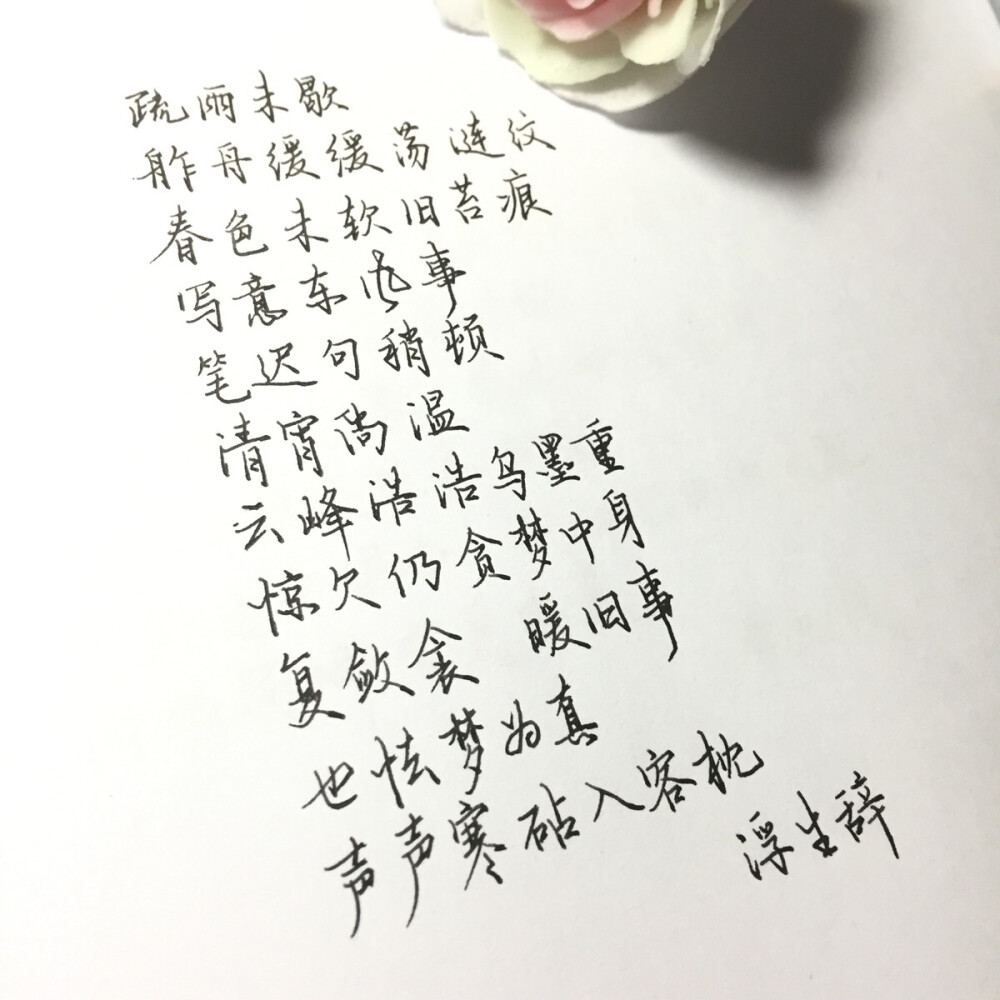 疏雨未歇
舴舟缓缓荡涟纹
春色未软旧苔痕
写意东风事
笔迟句稍顿
清宵尚温
云峰浩浩乌墨重
惊欠仍贪梦中身
复敛衾 暖旧事
也怯梦为真
声声寒砧入客枕
浮生辞